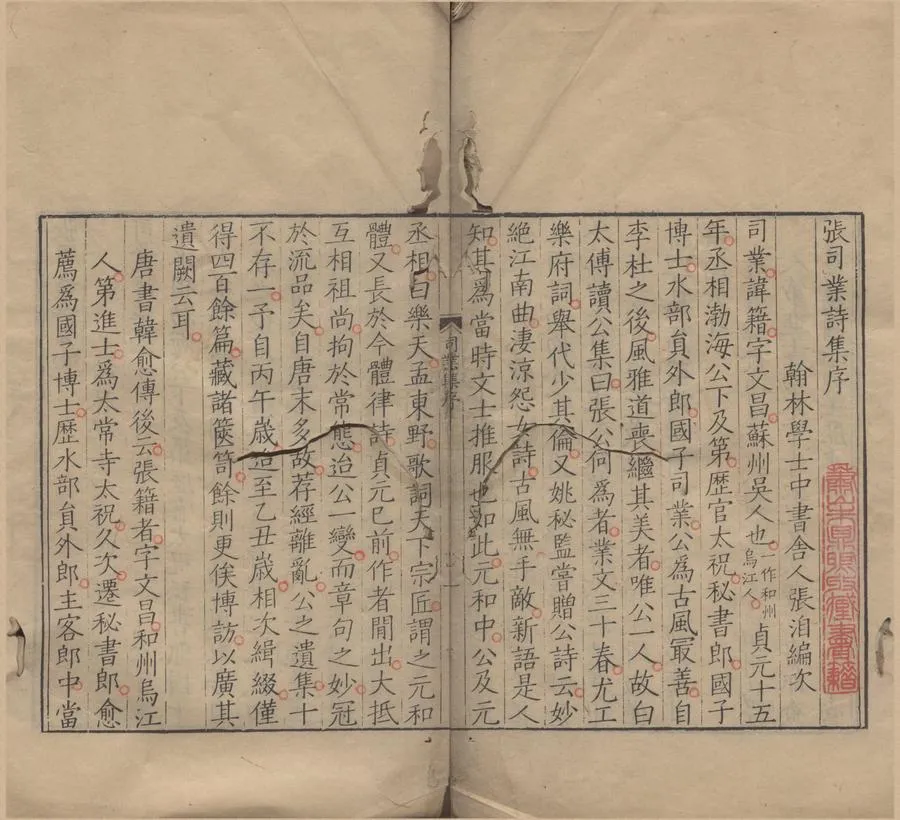 張司業詩集序
翰林學士中書舍人張洎編次
司業諱籍字文昌蘇州吳人也一作和州烏江人貞元十五
年丞相渤海公下及第歷官太祝秘書郎國子
博士水部員外郎國子司業公為古風最善自
李杜之後風雅道喪繼其美者唯公一人故白
太傅讀公集曰張公何為者業文三十春尤工
樂府詞舉代少其倫又姚秘監嘗贈公詩云妙
絕江南曲淒涼怨女詩古風無手敵新語是人
知其為當時文士推服也如此元和中公及元
司業集序
丞相白樂天孟東野歌詞天下宗匠謂之元和
體又長於今體律詩貞元已前作者閒出大抵
互相祖尚拘於常態迨公一變而章句之妙冠
於流品矣自唐末多故荐經離亂公之遺集十
不存一予自丙午歲迨至乙丑歲相次緝綴僅
得四百餘篇藏諸篋笥餘則更俟博訪以廣其
遺闕云耳
唐書韓愈傳後云張籍者字文昌和州烏江
人第進士為太常寺太祝久次遷秘書郎愈
薦為國子博士歷水部員外郎主客郎中當